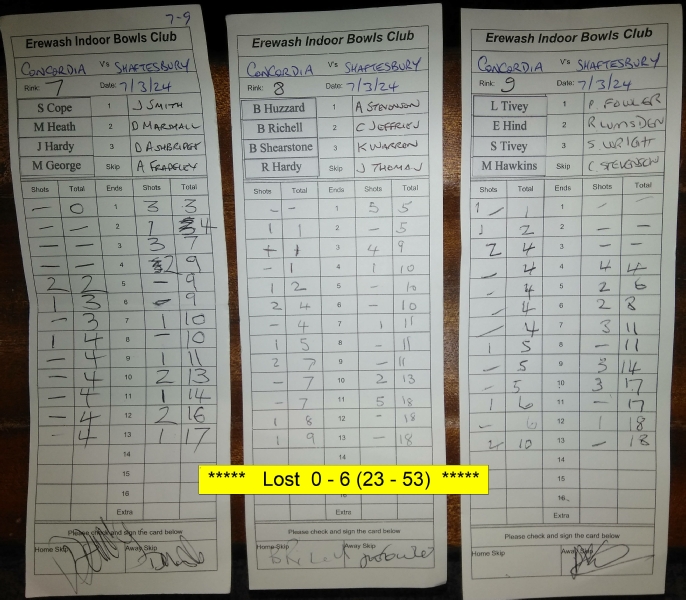 7-9
Erewash Indoor Bowls Club
CONCORDIA Vs SHAFTESBURY
Rink: 7 Date: 7/3/24
S Cope 1 J SMITH
M Heath 2 D MARSHALL
J Hardy 3 D ASHBRIDGE
M George Skip A FRADGLEY
Shots Total Ends Shots Total
— 0 1 3 3
— — 2 1 4
— — 3 3 7
— — 4 2 9
2 2 5 — 9
1 3 6 — 9
— 3 7 1 10
1 4 8 — 10
— 4 9 1 11
— 4 10 2 13
— 4 11 1 14
— 4 12 2 16
— 4 13 1 17
14
15
16
Extra
Please check and sign the card below
Home Skip Away Skip
Erewash Indoor Bowls Club
CONCORDIA Vs SHAFTESBURY
Rink: 8 Date: 7/3/24
B Huzzard 1 A STEVENSON
B Richell 2 C JEFFRIES
B Shearstone 3 K WARRON
R Hardy Skip J THOMAN
Shots Total Ends Shots Total
- - 1 5 5
1 1 2 - 5
3 4 9
- 1 4 10
1 2 5 - 10
2 4 6 - 10
- 4 7 1 11
1 5 8 - 11
2 7 9 - 11
- 7 10 2 13
- 7 11 5 18
1 8 12 - 18
1 9 13 - 18
14
Extra
Please check and sign the card below
Home Skip Away Skip
Erewash Indoor Bowls Club
CONCORDIA Vs SHAFTESBURY
Rink: 9 Date: 7/3/24
L Tivey 1 P FOWLER
E Hind 2 R LUMSDEN
S Tivey 3 S WRIGHT
M Hawkins Skip C STEVENSON
Shots Total Ends Shots Total
1 1 1 - -
1 2 2 — —
2 4 3 — —
— 4 4 4 4
— 4 5 2 6
— 4 6 2 8
— 4 7 3 11
1 5 8 — 11
— 5 9 3 14
— 5 10 3 17
1 6 11 — 17
— 6 12 1 18
2 10 13 — 18
14
15
16
Extra
Please check and sign the card below
Home Skip Away Skip
***** Lost 0 - 6 (23 - 53) *****